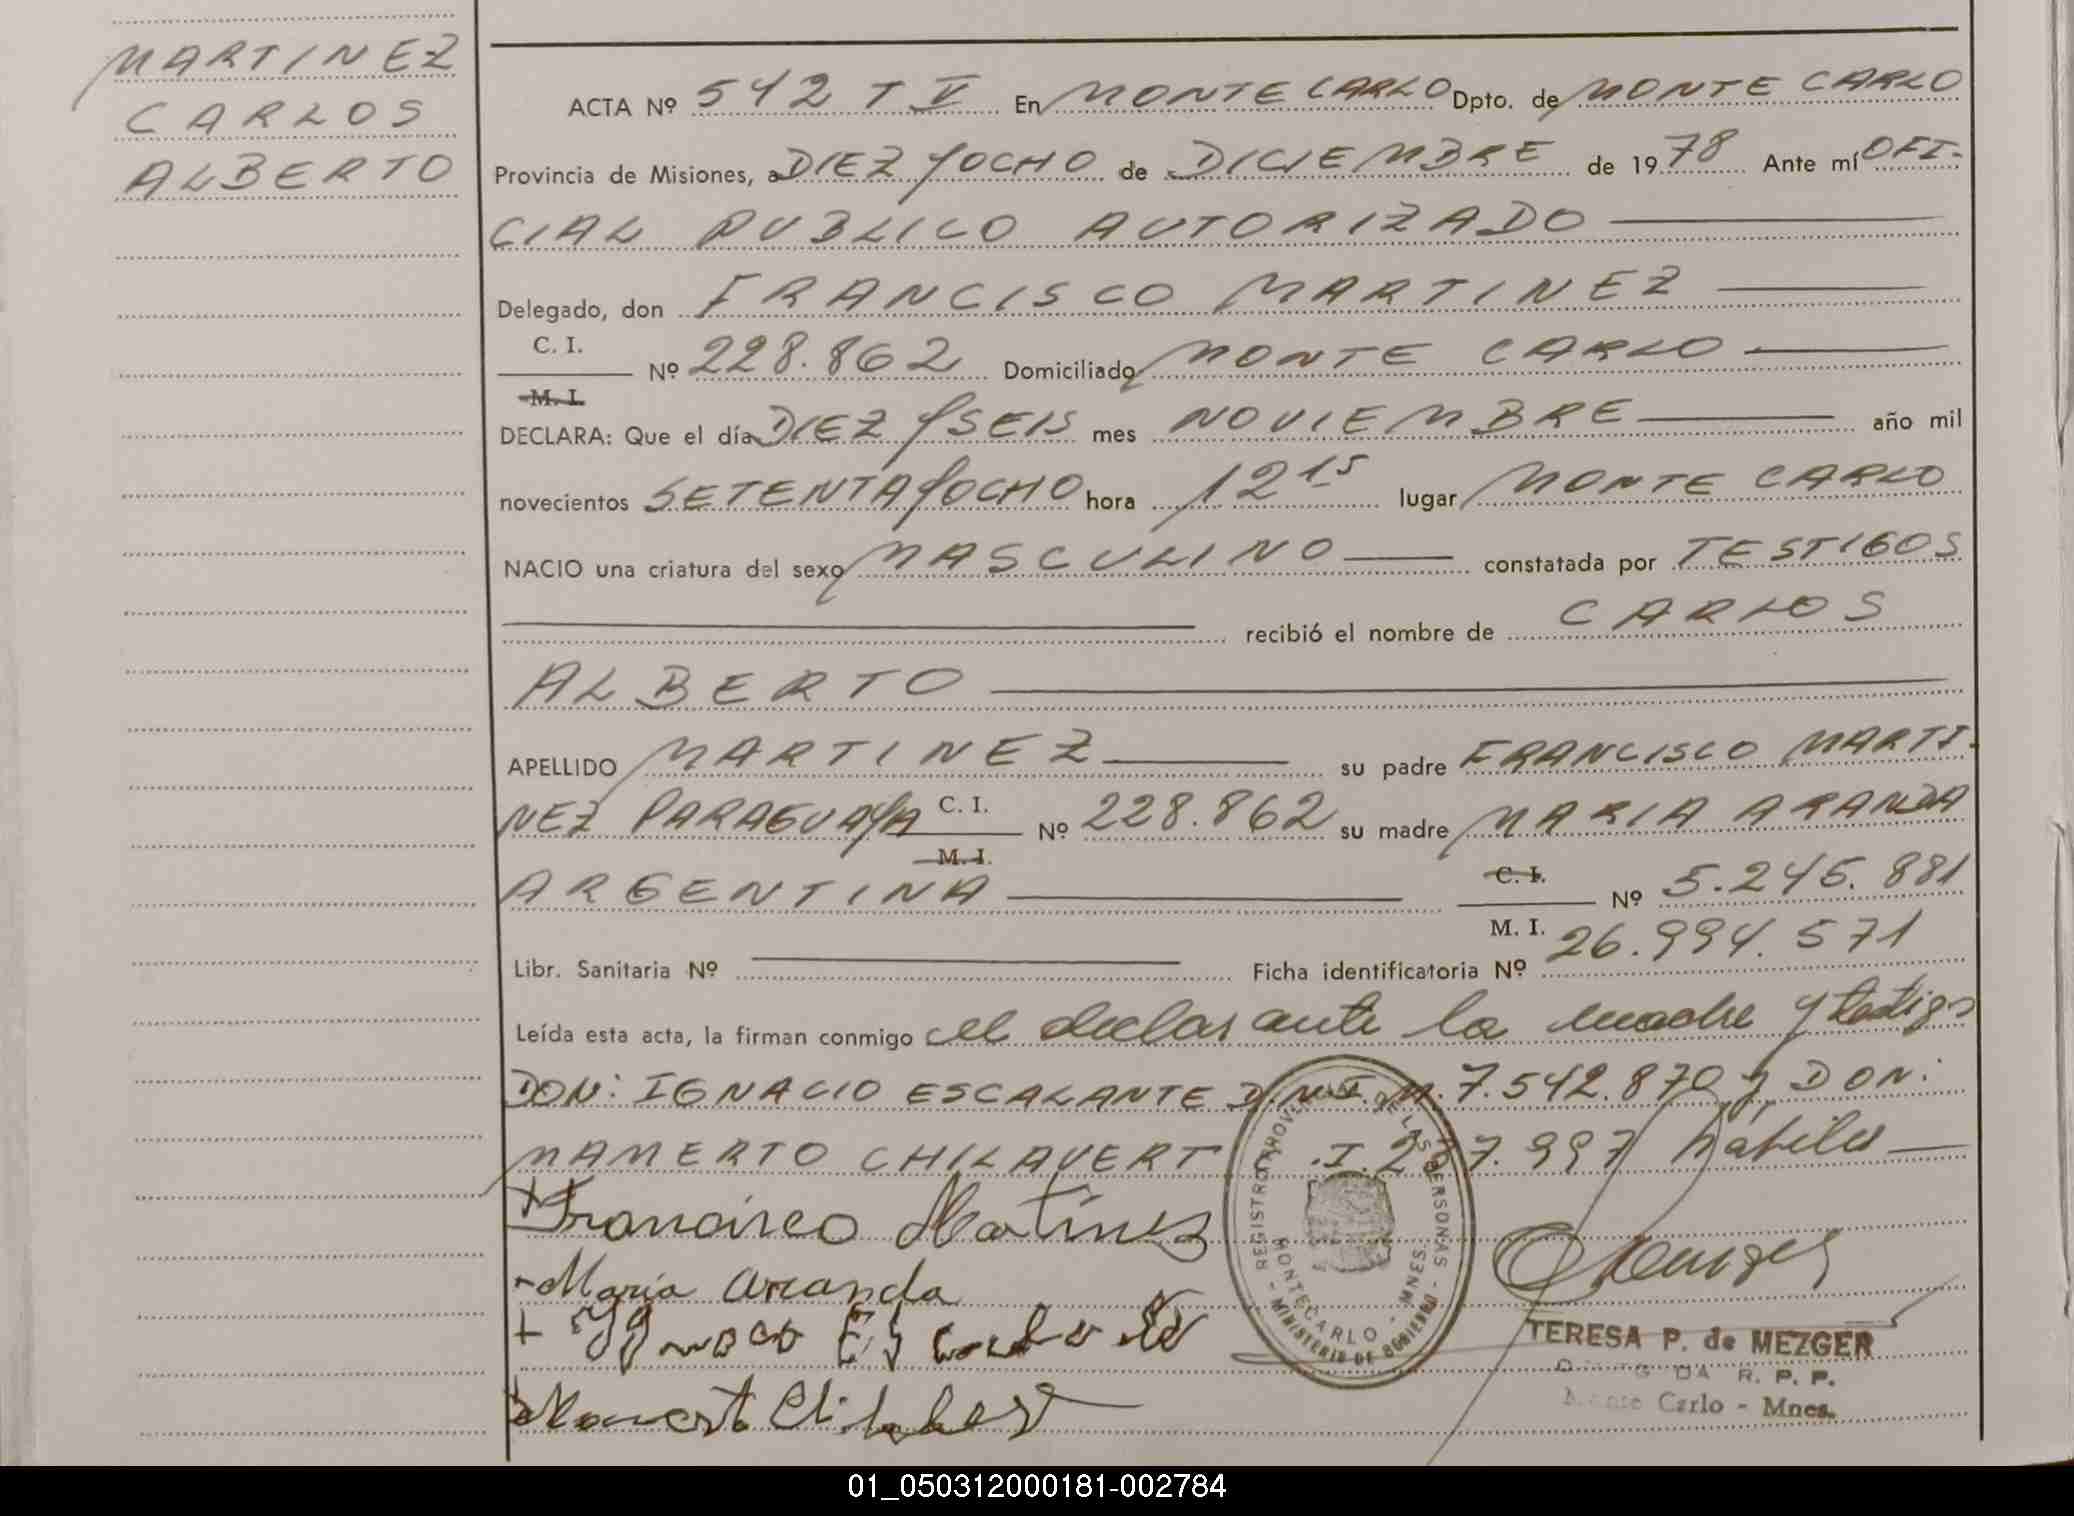 MARTINEZ
CARLOS
ALBERTO
ACTA Nº 542 T V En MONTECARLO Dpto. de MONTE CARLO
Provincia de Misiones, a DIEZ YOCHO de DICIEMBRE de 1978 Ante mí OFI-
CIAL PUBLICO AUTORIZADO
Delegado, don FRANCISCO MARTINEZ
C. I.
Nº 228.862 Domiciliado MONTE CARLO
M. I.
DECLARA: Que el día DIEZ YSEIS mes NOVIEMBRE año mil
novecientos SETENTAYOCHO hora 12 15 lugar MONTE CARLO
NACIO una criatura del sexo MASCULINO constatada por TESTIGOS
recibió el nombre de CARLOS
ALBERTO
APELLIDO MARTINEZ su padre FRANCISCO MARTI-
NEZ PARAGUAYA C. I. Nº 228.862 su madre MARIA ARANDA
M. I.
ARGENTINA C. I. Nº 5.245.881
M. I.
Libr. Sanitaria Nº Ficha identificatoria Nº 26.994.571
Leída esta acta, la firman conmigo el declarante la madre y testigos
DON: IGNACIO ESCALANTE D.N.I. M. 7.542.870 y DON:
MAMERTO CHILAVERT .I. 7.997 hábiles
Francisco Martinez
Maria Aranda
REGISTRO PROVINCIAL DE LAS PERSONAS
MONTECARLO - MNES.
- MINISTERIO DE GOBIERNO -
TERESA P. de MEZGER
R. P. P.
Monte Carlo - Mnes.
01_050312000181-002784